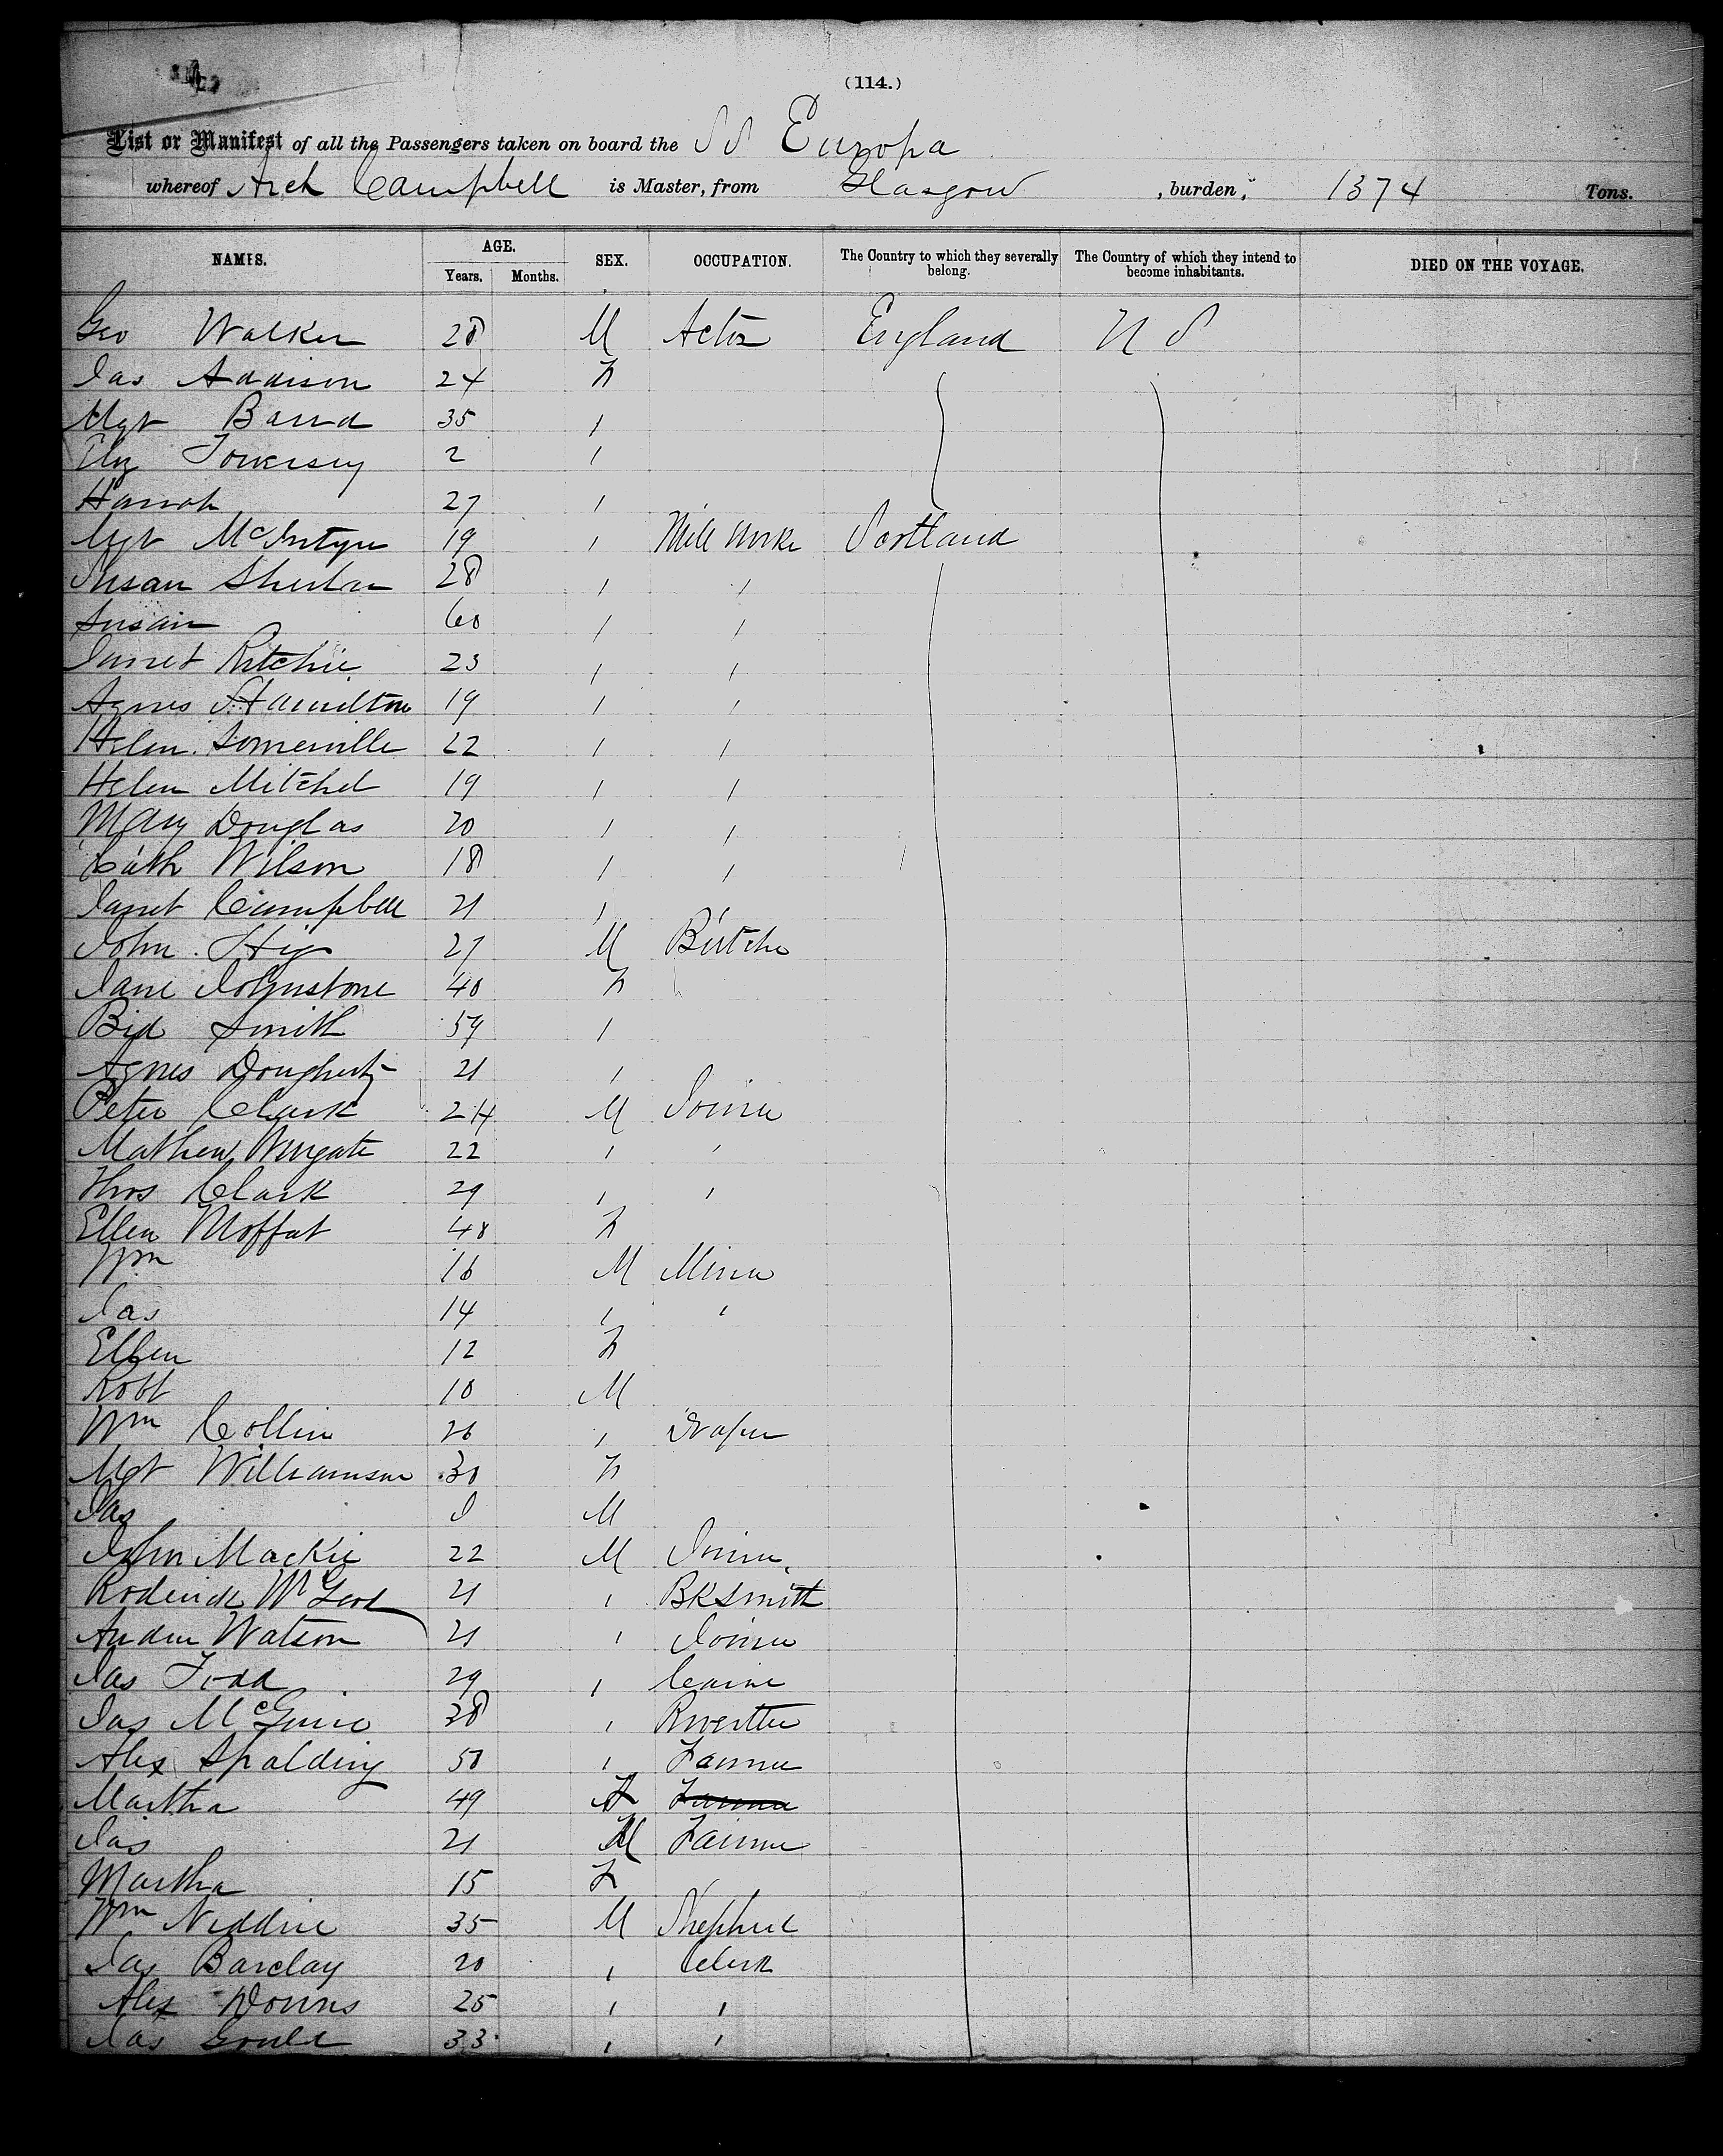 (114.)
List or Manifest of all the Passengers taken on board the SS Europa
whereof Arch Campbell is Master, from Glasgow, burden, 1374 Tons.
NAMES. AGE. SEX. OCCUPATION. The Country to which they severally belong. The Country of which they intend to become inhabitants. DIED ON THE VOYAGE.
Years. Months.
Geo Walker 28 M Actor England U S
Jas Addison 24 F
Mgt Baird 35 /
Eliz Towersey 2 /
Hannah 27 /
Mgt McIntyre 19 / Mill Worker Scotland
Susan 28 / /
Susan 60 / /
Janet Ritchie 23 / /
Agnes Hamilton 19 / /
Helen Somerville 22 / /
Helen Mitchel 19 / /
Mary Douglas 20 / /
Cath Wilson 18 / /
Janet Campbell 21 /
John 27 M Butcher
Jane Johnstone 40 F
Bid Smith 59 /
Agnes Dougherty 21 /
Peter Clark 24 M Joiner
Mathew Wingate 22 / /
Thos Clark 29 / /
Ellen Moffat 48 F
Wm 16 M Miner
Jas 14 / /
Ellen 12 F
Robt 10 M
Wm Collin 26 / Draper
Mgt Williamson 30 F
Jas M
John Mackie 22 M Joiner
Roderick McLeod 21 / BKSmith
Andrew Watson 21 / Joiner
Jas Todd 29 /
Jas McGuire 38 /
Alex Spalding 50 / Farmer
Martha 49 F Farmer
Jas 21 M Farmer
Martha 15 F
Wm Niddrie 35 M Shepherd
Jas Barclay 20 / Clerk
Alex Downs 25 / /
Jas Gould 33 / /